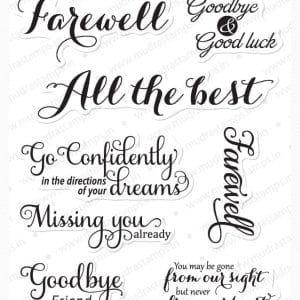 Farewell
Goodbye
&
Good luck
All the best
Go Confidently
in the directions
of your dreams
Farewell
Missing you
already
Goodbye
Friend
You may be gone
from our sight
but never